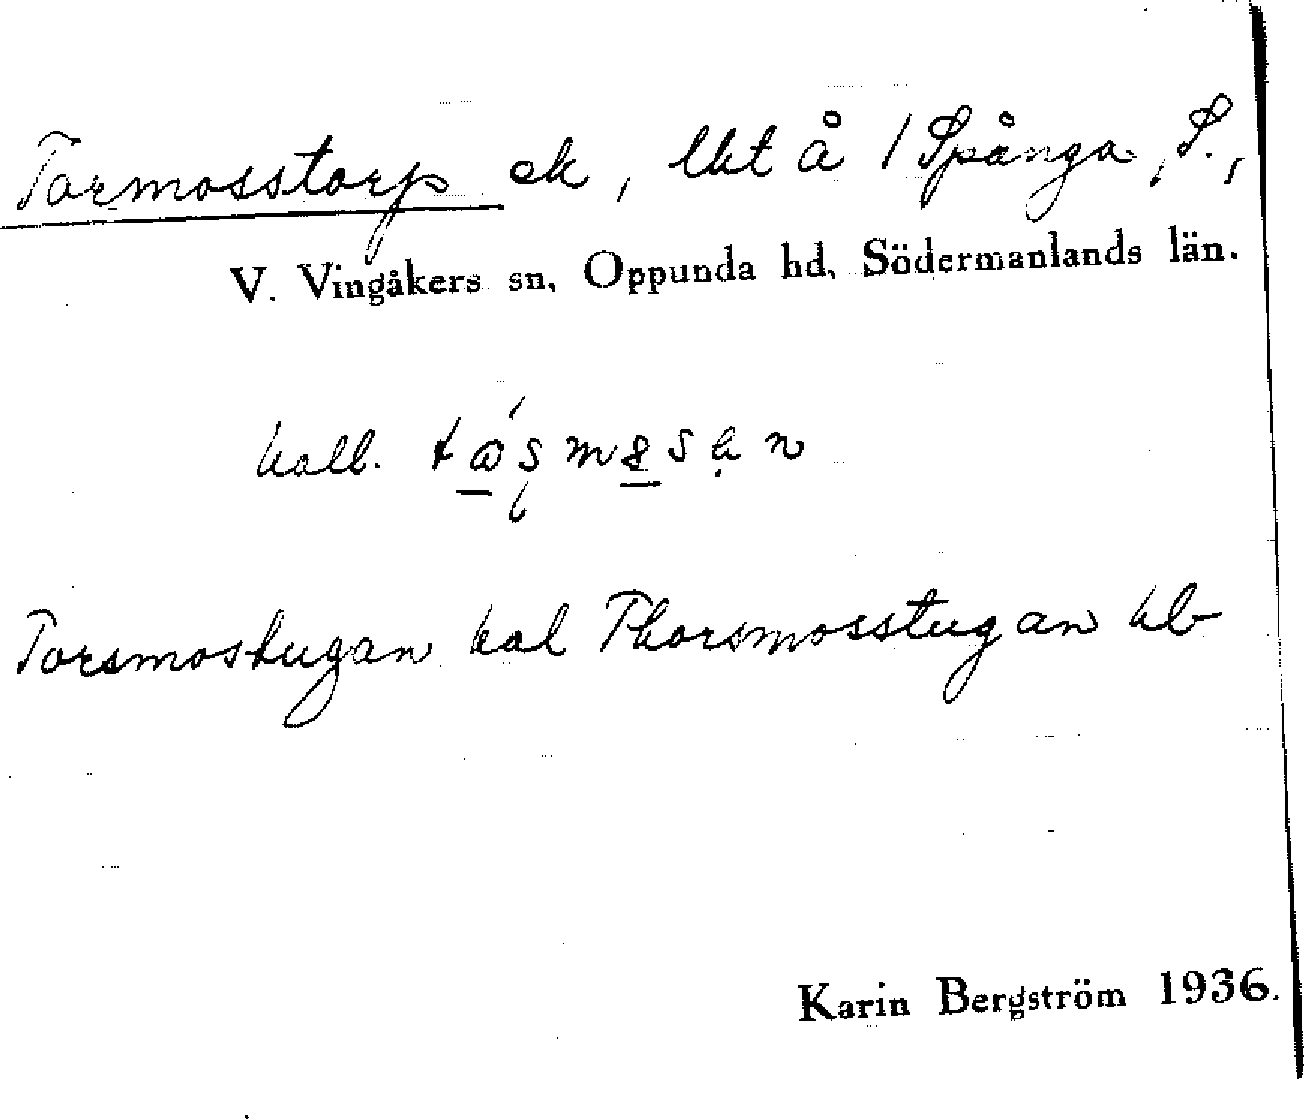 Tormosstorp ek, lht å 1 Spånga, S.,
V. Vingåkers sn, Oppunda hd, Södermanlands län.
kall.
Torsmostugan kal Thorsmosstugan hb
Karin Bergström 1936.